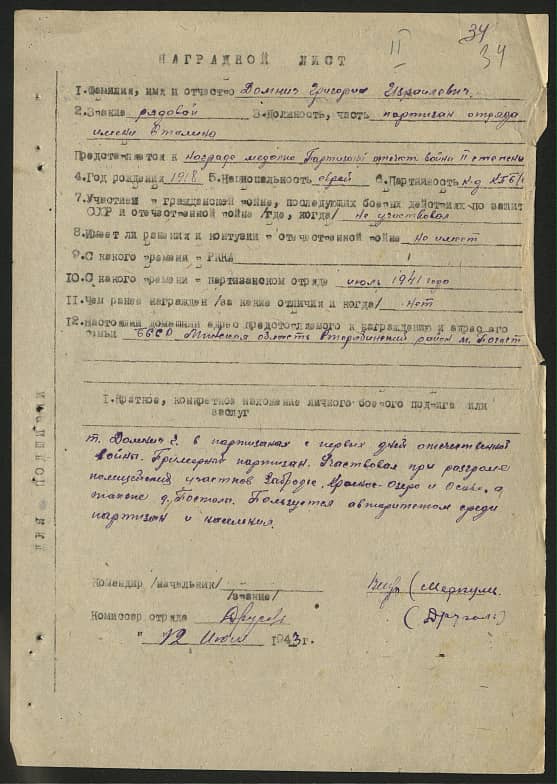 34
II 34
НАГРАДНОЙ ЛИСТ
1.Фамилия, имя и отчество Домнич Григорий Израилевич.
2.Звание рядовой 3.Должность, часть партизан отряда
имени Сталина
Представляется к награде медалью Партизану отечест войны II степени
4.Год рождения 1918 5.Национальность еврей 6.Партийность к.д. КПб/Б
7.Участием в гражданской войне, последующих боевых действиях по защит
СССР и отечественной войне /где, когда/ не участвовал
8.Имеет ли ранения и контузии в отечественной войне не имеет
9.С какого времени в РККА
10.С какого времени в партизанском отряде июль 1941 года
11.Чем ранее награжден /за какие отличия и когда/ нет
12.Настоящий домашний адрес представляемого к награждению и адрес его
семьи БССР Минская область Старобинский район м. Погост
1.Краткое, конкретное изложение личного боевого подвига или
заслуг
т. Домнич Г. в партизанах с первых дней отечественной
войны. Примерный партизан. Участвовал при разгроме
полицейских участков Забродье, Красное-Озеро и Осово, а
также д. Постолы. Пользуется авторитетом среди
партизан и населения.
Командир /начальник/
/звание/
Комиссар отряда
"12 Июля 1943г.